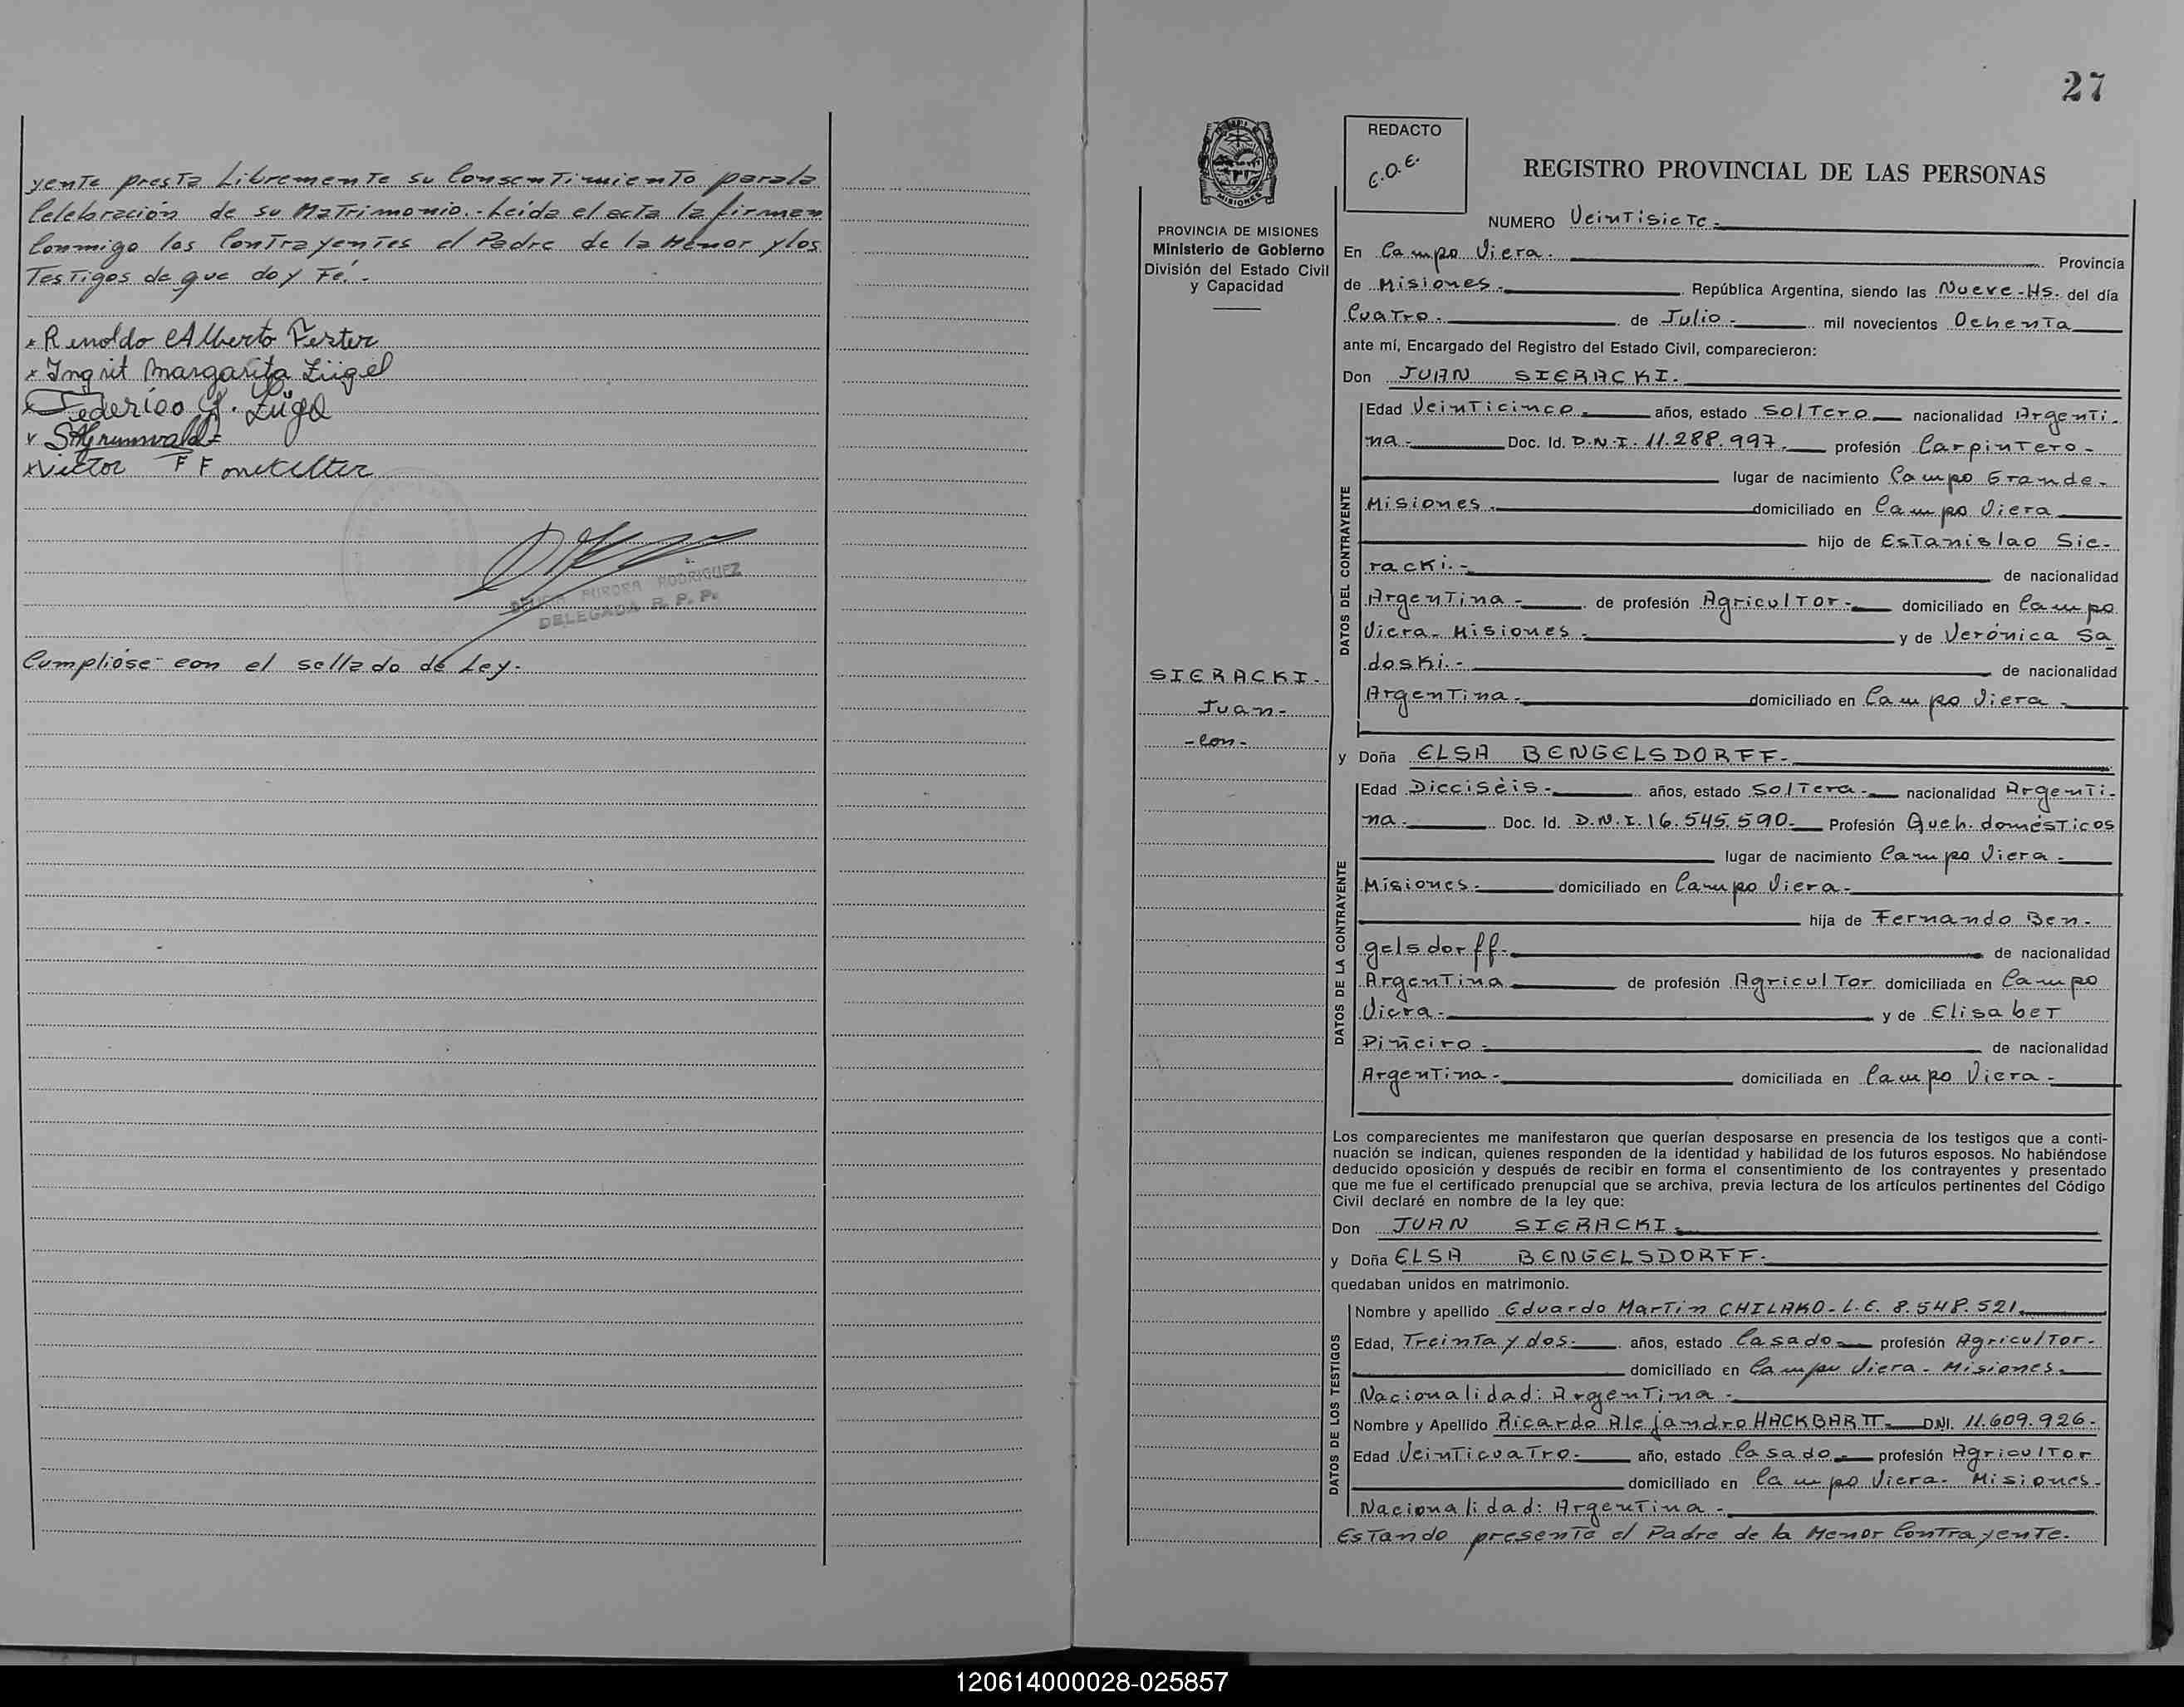 yente presta Libremente su Consentimiento para la
Celebración de su Matrimonio.- Leída el acta la firman
Conmigo los Contrayentes el Padre de la Menor y los
Testigos de que doy Fé.-
x Renoldo Alberto Ferter
x Ingrit Margarita Zügel
Federico G. Zügel
Victor F
RODRIGUEZ
DELEGADA R. P. P.
Cumplióse con el sellado de Ley.-
27
REDACTO
C.O.E.
REGISTRO PROVINCIAL DE LAS PERSONAS
NUMERO Veintisiete.-
PROVINCIA DE MISIONES
Ministerio de Gobierno
División del Estado Civil
y Capacidad
SIERACKI.-
Juan-
-Con-
En Campo Viera.- Provincia
de Misiones.- República Argentina, siendo las Nueve-Hs. del día
Cuatro.- de Julio.- mil novecientos Ochenta
ante mí, Encargado del Registro del Estado Civil, comparecieron:
Don JUAN SIERACKI.-
DATOS DEL CONTRAYENTE
Edad Veinticinco.- años, estado Soltero nacionalidad Argenti-
na.- Doc. Id. D.N.I. 11.288.997.- profesión Carpintero-
lugar de nacimiento Campo Grande.-
Misiones.- domiciliado en Campo Viera
hijo de Estanislao Sie-
racki.- de nacionalidad
Argentina.- de profesión Agricultor.- domiciliado en Campo
Viera- Misiones.- y de Verónica Sa
doski.- de nacionalidad
Argentina.- domiciliado en Campo Viera.-
y Doña ELSA BENGELSDORFF.-
DATOS DE LA CONTRAYENTE
Edad Dieciséis.- años, estado Soltera.- nacionalidad Argenti-
na.- Doc. Id. D.N.I. 16.545.590.- Profesión Queh. domésticos
lugar de nacimiento Campo Viera.-
Misiones.- domiciliado en Campo Viera.-
hija de Fernando Ben-
gelsdorff.- de nacionalidad
Argentina de profesión Agricultor domiciliada en Campo
Viera.- y de Elisabet
Piñeiro.- de nacionalidad
Argentina.- domiciliada en Campo Viera.-
Los comparecientes me manifestaron que querían desposarse en presencia de los testigos que a conti-
nuación se indican, quienes responden de la identidad y habilidad de los futuros esposos. No habiéndose
deducido oposición y después de recibir en forma el consentimiento de los contrayentes y presentado
que me fue el certificado prenupcial que se archiva, previa lectura de los artículos pertinentes del Código
Civil declaré en nombre de la ley que:
Don JUAN SIERACKI.-
y Doña ELSA BENGELSDORFF.-
quedaban unidos en matrimonio.
DATOS DE LOS TESTIGOS
Nombre y apellido Eduardo Martin CHILAKO- L.E. 8.548.521
Edad, Treinta y dos.- años, estado Casado profesión Agricultor-
domiciliado en Campo Viera- Misiones.-
Nacionalidad: Argentina.-
Nombre y Apellido Ricardo Alejandro HACKBARTT- DNI. 11.609.926.-
Edad Veinticuatro.- año, estado Casado.- profesión Agricultor
domiciliado en Campo Viera- Misiones.-
Nacionalidad: Argentina.-
Estando presente el Padre de la Menor Contrayente.-
120614000028-025857